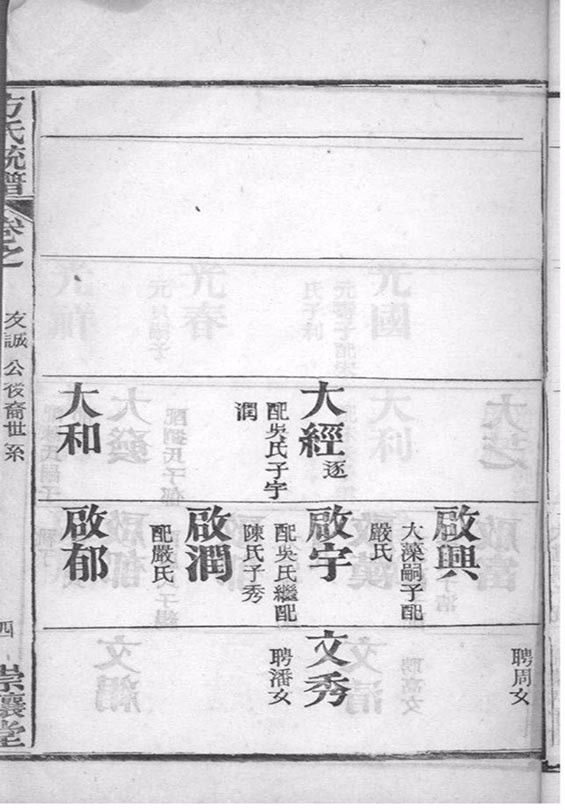 大經
逐
配吳氏子宇
潤
大和
啟興
大藻嗣子配
嚴氏
啟宇
配吳氏繼配
陳氏子秀
啟潤
配嚴氏
啟郁
聘周女
文秀
聘潘女
方氏統譜
卷之
友誠公後裔世系
四
崇讓堂